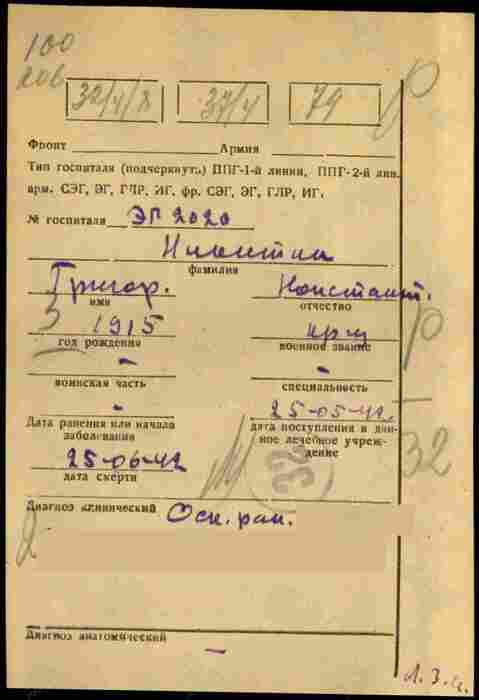 100
206
32/4/8 37/4 79
Фронт Армия
Тип госпиталя (подчеркнуть) ППГ-1-й линии, ППГ-2-й лин.
арм. СЭГ, ЭГ, ГЛР, ИГ, фр. СЭГ, ЭГ, ГЛР, ИГ.
№ госпиталя ЭГ 2020
фамилия
Григор. Констант.
имя отчество
1915
год рождения военное звание
воинская часть специальность
25-05-42
Дата ранения или начало заболевания
дата поступления в данное лечебное учреждение
25-06-42
дата смерти
32
32
Диагноз клинический Оск. ран.
Диагноз анатомический